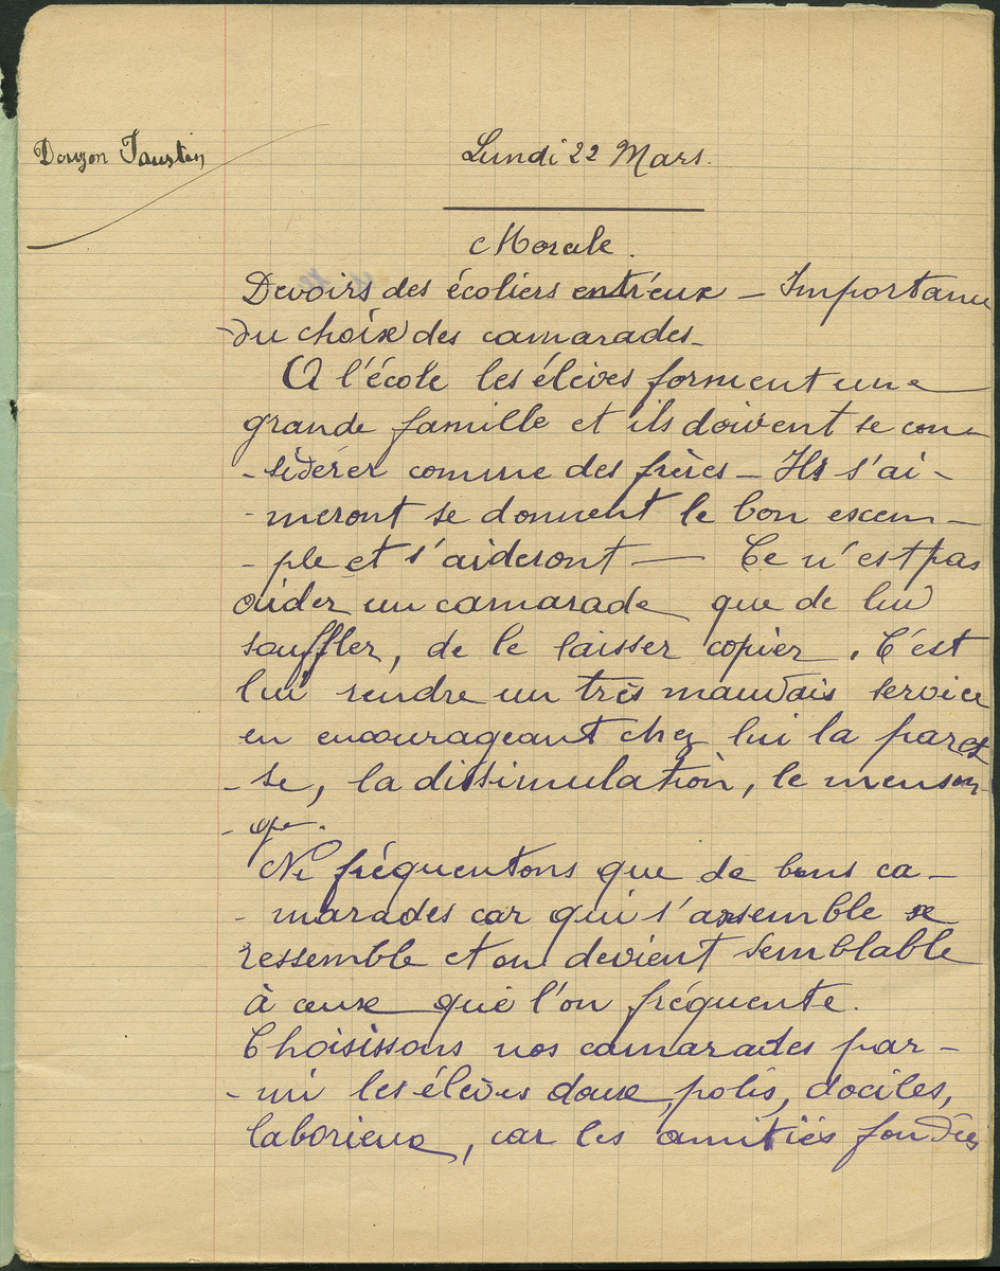 Douzon Faustin
Lundi 22 Mars.
Morale.
Devoirs des écoliers entr'eux – Importance
du choix des camarades –
A l'école les élèves forment une
grande famille et ils doivent se con-
- sidérer comme des frères – Ils s'ai-
- meront se donnent le bon exem-
- ple et s'aideront — Ce n'est pas
aider un camarade que de lui
souffler, de le laisser copier. C'est
lui rendre un très mauvais service
en encourageant chez lui la pares
- se, la dissimulation, le menson-
- ge.
Ne fréquentons que de bons ca-
- marades car qui s'assemble se
ressemble et on devient semblable
à ceux que l'on fréquente.
Choisissons nos camarades par-
- mi les élèves doux, polis, dociles,
laborieux, car les amitiés fondées